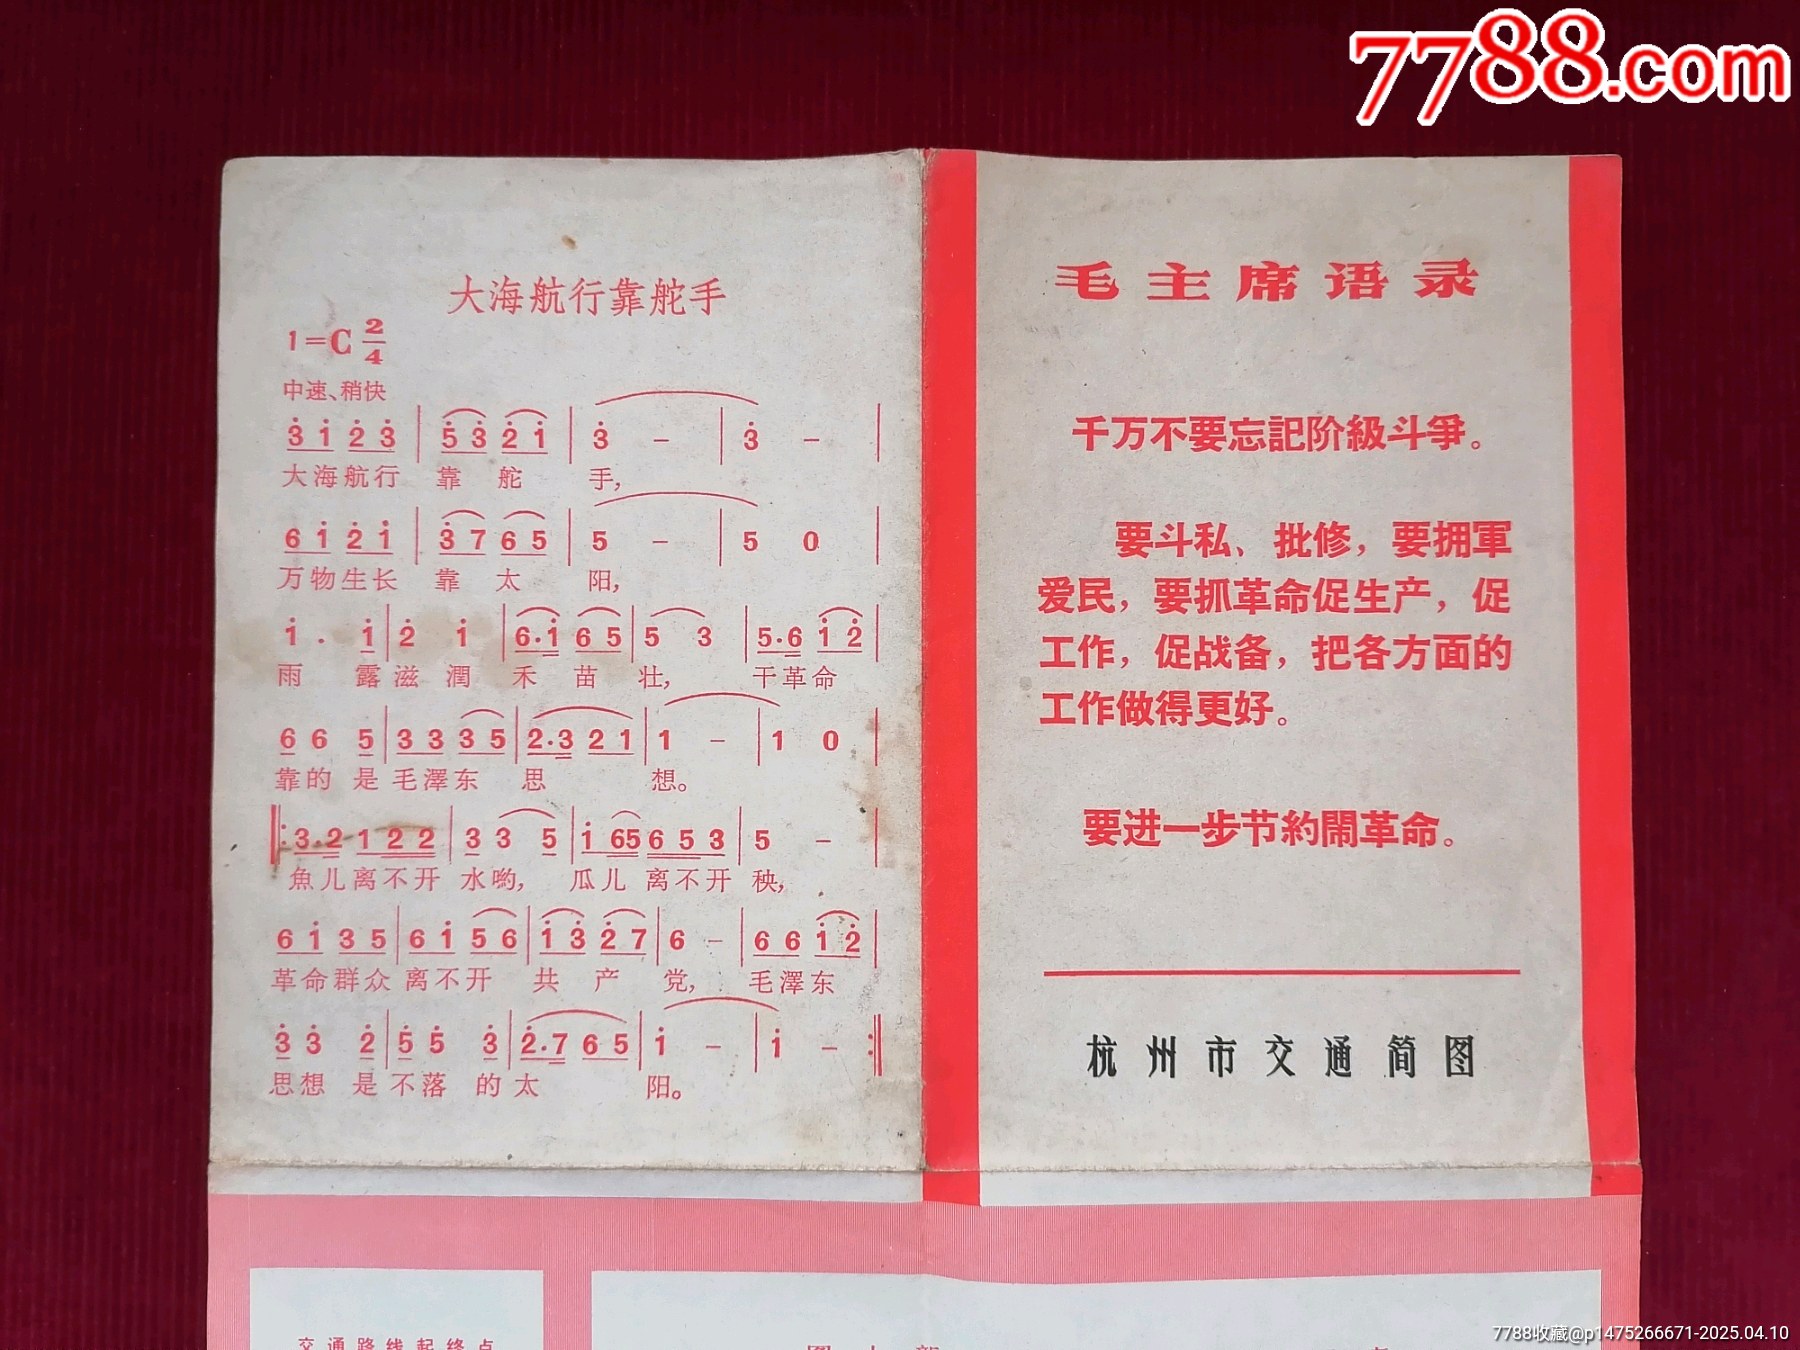 7788.com
大海航行靠舵手
1=C 2/4
中速、稍快
3̇ 1̇ 2̇ 3̇ | 5̇ 3̇ 2̇ 1̇ | 3̇ – | 3̇ – |
大海航行 靠 舵 手,
6 1̇ 2̇ 1̇ | 3̇ 7 6 5 | 5 – | 5 0 |
万物生长 靠 太 阳,
1̇ . 1̇ | 2̇ 1̇ | 6·1̇ 6 5 | 5 3 | 5·6 1̇ 2̇ |
雨 露滋 潤 禾 苗 壮, 干革命
6 6 5 | 3 3 3 5 | 2·3 2 1 | 1 – | 1 0 |
靠的 是 毛澤东 思 想。
‖: 3·2 1 2 2 | 3 3 5 | 1̇ 65 6 5 3 | 5 – |
魚儿离不开 水喲, 瓜儿 离不开 秧,
6 1̇ 3 5 | 6 1̇ 5 6 | 1̇ 3̇ 2̇ 7 | 6 – | 6 6 1̇ 2̇ |
革命群众 离不开 共 产 党, 毛澤东
3̇ 3̇ 2̇ | 5̇ 5̇ 3̇ | 2̇·7 6 5 | 1̇ – | 1̇ – :‖
思想 是 不落 的 太 阳。
毛主席语录
千万不要忘記阶級斗爭。
要斗私、批修，要拥軍
爱民，要抓革命促生产，促
工作，促战备，把各方面的
工作做得更好。
要进一步节約鬧革命。
杭州市交通简图
交通路线起终点
7788收藏@p1475266671-2025.04.10